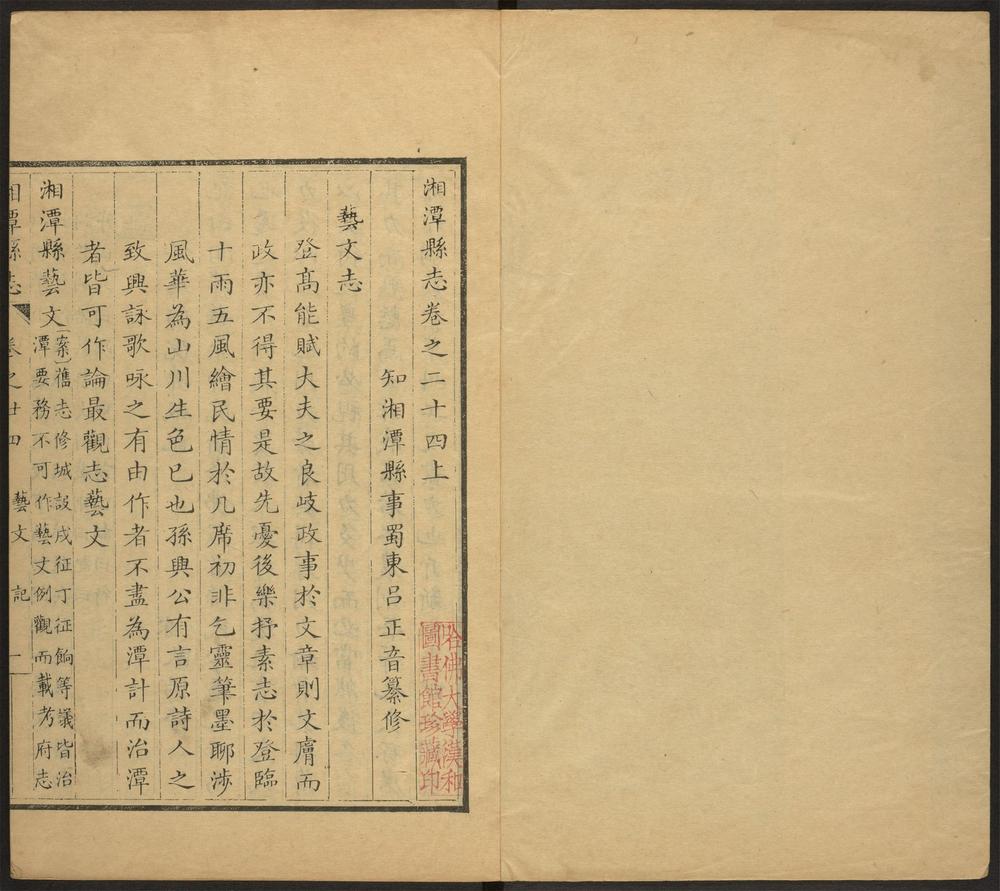 湘潭縣志卷之二十四上
知湘潭縣事蜀東呂正音纂修
藝文志
登高能賦大夫之良岐政事於文章則文膚而
政亦不得其要是故先憂後樂抒素志於登臨
十雨五風繪民情於几席初非乞靈筆墨聊涉
風華為山川生色已也孫興公有言原詩人之
致興詠歌咏之有由作者不盡為潭計而治潭
者皆可作論最觀志藝文
湘潭縣藝文
案舊志修城設戍征丁征餉等議皆治
潭要務不可作藝文例觀而載考府志
湘潭縣志 卷之廿四 藝文 記 一
哈佛大學漢和
圖書館珍藏印